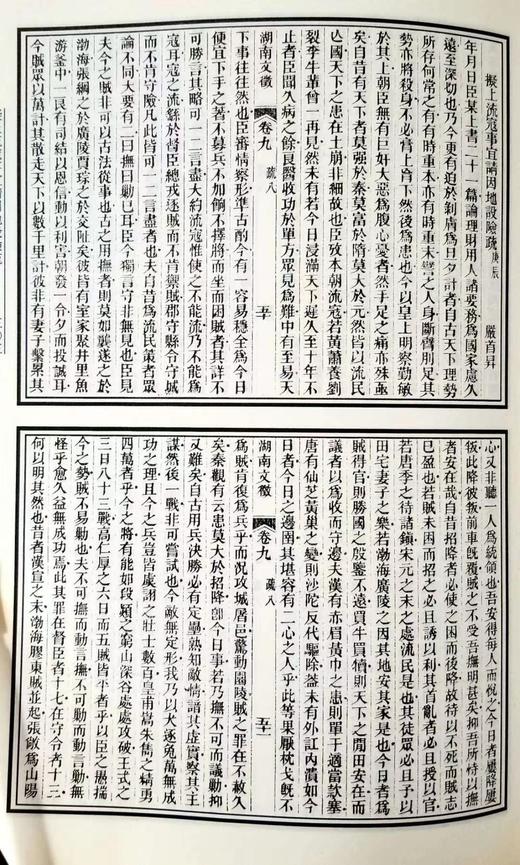 擬上流寇事宜請因地設險疏庚辰
嚴首昇
年月日臣某上書二十一篇論理財用人諸要務爲國家慮久
遠至深切也乃今更有迫於剝膚爲旦夕計者自古天下理勢
所存何常之有有時重本亦有時重末譬之人身斷臂則足其
勢亦將殺身不必膏上肓下然後爲患也今以皇上明察勤敏
於其上朝臣無有巨奸大惡爲腹心憂者然手足之痛亦殊亟
矣自昔有天下者莫強於秦莫富於隋莫大於元然皆以流民
亡國天下之患在土崩非細故也臣攷本朝流寇若黃蕭養劉
裂李牛董曾一再見然未有若今日浸滿天下遲久至十年不
止者臣聞久病之餘良醫收功於單方眾見爲難中有至易天
湖南文徵
卷九
疏八
平
下事往往然也臣審情察形準古酌今有一容易穩全爲今日
便宜下手之著不募兵不加餉不擇將而坐而困賊者其詳不
可勝言其略可一二言盡大約流寇惟使之不能流乃不能爲
寇耳寇之流繇於督臣總戎逐賊而不肯禦賊郡守縣令守城
而不肯守險凡此皆可一二言盡者也夫自昔爲流民策者眾
論不同大要有二曰撫曰勦已耳臣今獨言守非無見也臣見
夫今之賊非可以古法從事也古之用撫者則莫如龔遂之於
渤海張綱之於廣陵賈琮之於交阯矣彼皆有室家聚井里魚
游釜中一艮有司結以恩信動以利害朝發一令夕而投誠耳
今賊眾以萬計其散走天下以數千里計彼非有妻子繫累其
心又非聽一人爲統領也吾安得每人而悅之今日者屢降屢
叛此降彼叛前車旣覆賊之不受吾撫明甚矣抑吾所恃以撫
者安在哉自昔招降者必使之困而後降故待以不死而賊志
已盈也若賊未困而招之必且誘以利其首亂者必且授以官
若唐季之待諸鎮宋元之末之處流民是也其徒眾必且予以
田宅妻子之樂若渤海廣陵之因其地安其家是也今日者爲
賊得官則勝國之殷鑒不遠買牛買犢則天下之閒田安在而
議者以爲收而守邊夫漢有赤眉黃巾之患則單于適當款塞
唐有仙芝黃巢之變則沙陀反代驅除葢未有外訌內潰如今
日者今日之邊圉其堪容有二心之人乎此等果厭枕戈旣不
湖南文徵
卷九
疏八
平一
爲賊肯復爲兵乎而況攻城屠邑驚動園陵賊之罪在不赦久
矣秦觀有云患莫大於招降卽今日事若乃撫不可而議勦抑
又難矣自古用兵決勝必有定壘熟知敵情諳其虛實察其主
謀然後一戰非可嘗試也今敵無定形我乃以犬逐兔萬無成
功之理且今之兵豈皆虞詡之壯士數百皇甫嵩朱儁之精勇
四萬者乎今之將有能如段熲之窮山深谷處處攻破王式之
三日八十三戰高仁厚之六日而五賊皆平者乎以臣之愚揣
今之勢賊不易勦也夫不可撫而動言撫不可勦而動言勦無
怪乎愈久益無成功焉此其罪在督臣者十七在守令者十三
何以明其然也昔者漢宣之末渤海膠東賊並起張敞爲山陽